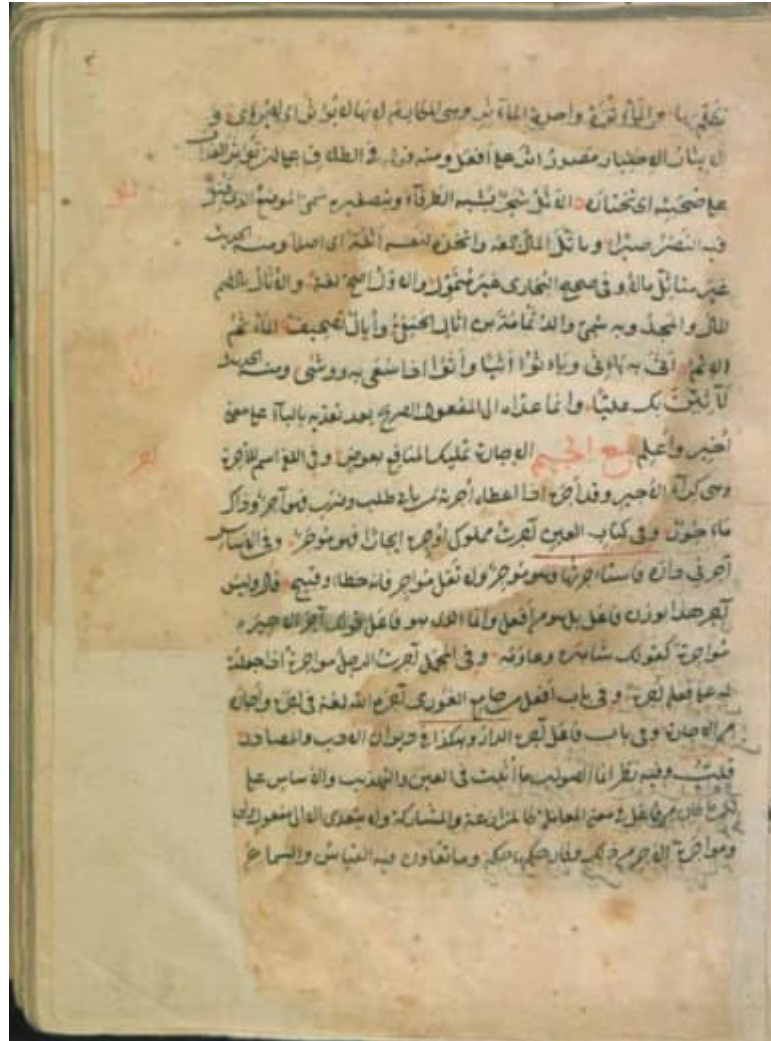 تعلق بها والمأثرة واحدة المآثر وهي المكارم لانها تؤثر اي تروى و
الايثار الاختيار مصدر اثر على افعل ومنه قوله في الطلاق على ان تؤثر العذاب
على صحبته اي تختار الاثل شجر يشبه الطرفاء وبتصغيره سمي الموضع الذي قتل
فيه النضر صبرا وتأثل المال جمعه واتخذه لنفسه اثلة اي اصلا ومنه الحديث
غير متأثل مالا وفي صحيح البخاري غير متمول والاول اصح لغة والاثال بالضم
المال والمجد وبه سمي والد ثمامة بن اثال الحنفي وأبال تصحيف
الاثم اثى به يأثي ويأثو اثيا وأثوا اذا سعى به ووشى ومنه الحديث
لآثين بك عليا وانما عداه الى المفعول الصريح بعد تعديه بالباء على معنى
اخبر وأعلم مع الجيم الاجارة تمليك المنافع بعوض وفي اللغة اسم للاجرة
وهي كراء الاجير وقد اجره اذا اعطاه اجرته من باب طلب وضرب فهو آجر وذاك
مأجور وفي كتاب العين آجرت مملوكي اوجره ايجارا فهو موجر وفي الاساس
آجرني داره فاستأجرتها وهو موجر ولا تقل مواجر فانه خطأ وقبيح قال وليس
آجر هذا بوزن فاعل بل هو من افعل وانما الذي هو فاعل قولك آجر الاجير
مواجرة كقولك شاهره وعاومه وفي المجمل آجرت الرجل مواجرة اذا جعلت
له على فعله اجرة وفي باب افعل من جامع الغوري آجره الله لغة في اجره وآجره
من الاجارة وفي باب فاعل آجره الدار وهكذا في ديوان الادب والمصادر
قلت وفيه نظر انما الصواب ما اثبت في العين والتهذيب والاساس على
ان ما كان من فاعل في معنى المعاملة كالمزارعة والمشاركة لا يتعدى الا الى مفعول واحد
ومواجرة الاجير من ذلك وما تعاون فيه القياس والسماع